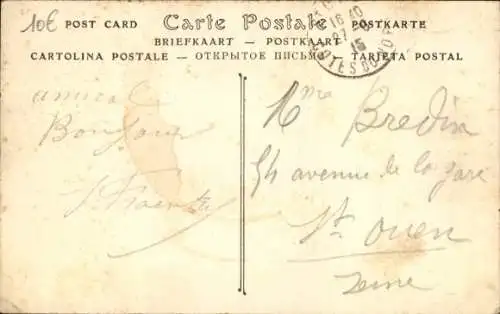 10€
POST CARD Carte Postale POSTKARTE
BRIEFKAART — POSTKAART
CARTOLINA POSTALE — ОТКРЫТОЕ ПИСЬМО — TARJETA POSTAL
16 40
27
15
COTES DU NORD
amical
Bonjour
Mme Bredin
54 avenue de la gare
St. Ouen
Seine